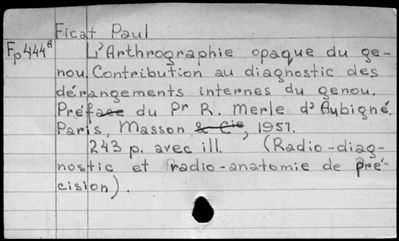 Ficat Paul
Fp 444a L'Arthrographie opaque du ge-
nou. Contribution au diagnostic des
dérangements internes du genou.
Préface du Pr R. Merle d'Aubigné.
Paris, Masson & Cie, 1957.
243 p. avec ill. (Radio-diag-
nostic et radio-anatomie de pré-
cision).